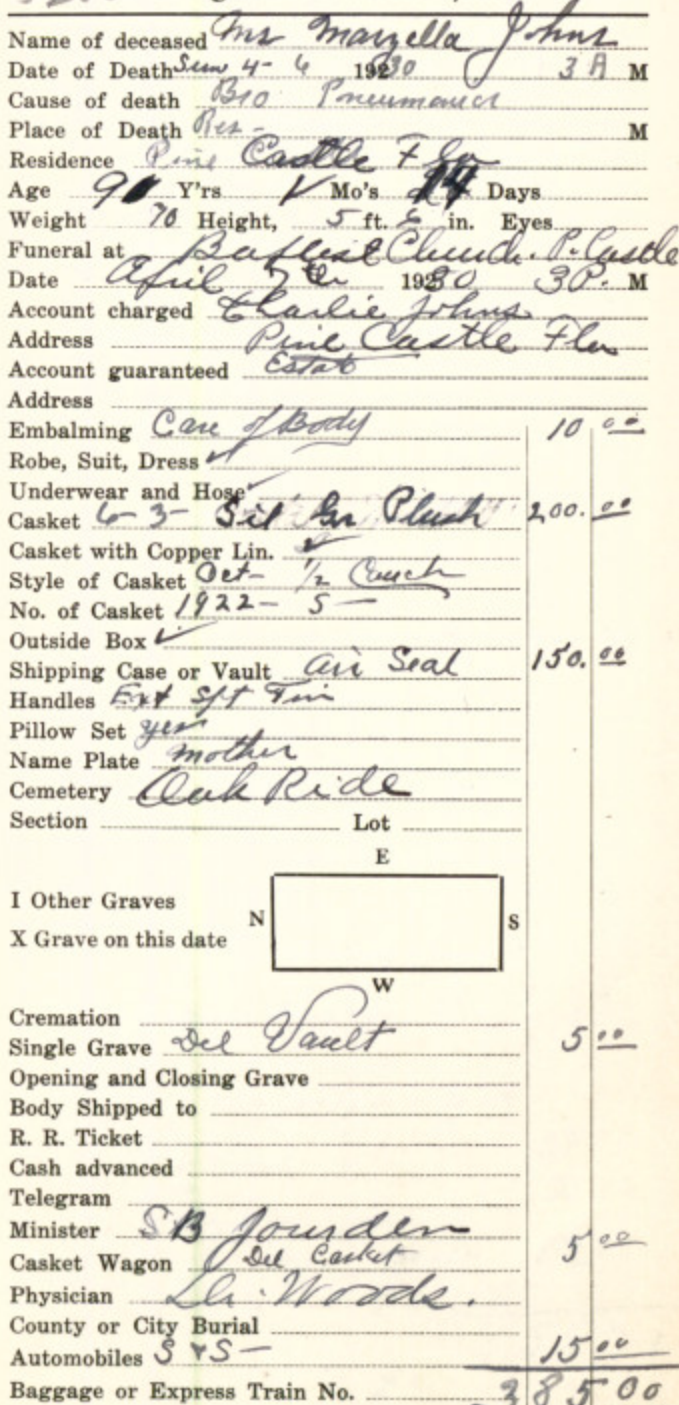 Name of deceased Mrs Marzella Johns
Date of Death Sun 4-6 1930 3 A M
Cause of death Bro Pneumonia
Place of Death Res- M
Residence Pine Castle Fla
Age 9 Y'rs Mo's 14 Days
Weight 70 Height, 5 ft. 6 in. Eyes
Funeral at Baptist Church. P. Castle
Date April 7th 1930 3 P. M
Account charged Charlie Johns
Address Pine Castle Fla
Account guaranteed Estat
Address
Embalming Care of Body 10 00
Robe, Suit, Dress ✓
Underwear and Hose ✓
Casket 6-3- Sil Gr Plush 200. 00
Casket with Copper Lin. ✓
Style of Casket Oct- 1/2 Couch
No. of Casket 1922- S-
Outside Box ✓
Shipping Case or Vault Air Seal 150. 00
Handles Ext
Pillow Set yes
Name Plate Mother
Cemetery Oak Ride
Section Lot
E
I Other Graves
N S
X Grave on this date
W
Cremation
Single Grave Del Vault 5 00
Opening and Closing Grave
Body Shipped to
R. R. Ticket
Cash advanced
Telegram
Minister S B Jourden
Casket Wagon Del Casket 5 00
Physician Dr. Woods.
County or City Burial
Automobiles S & S- 15 00
Baggage or Express Train No. 385 00